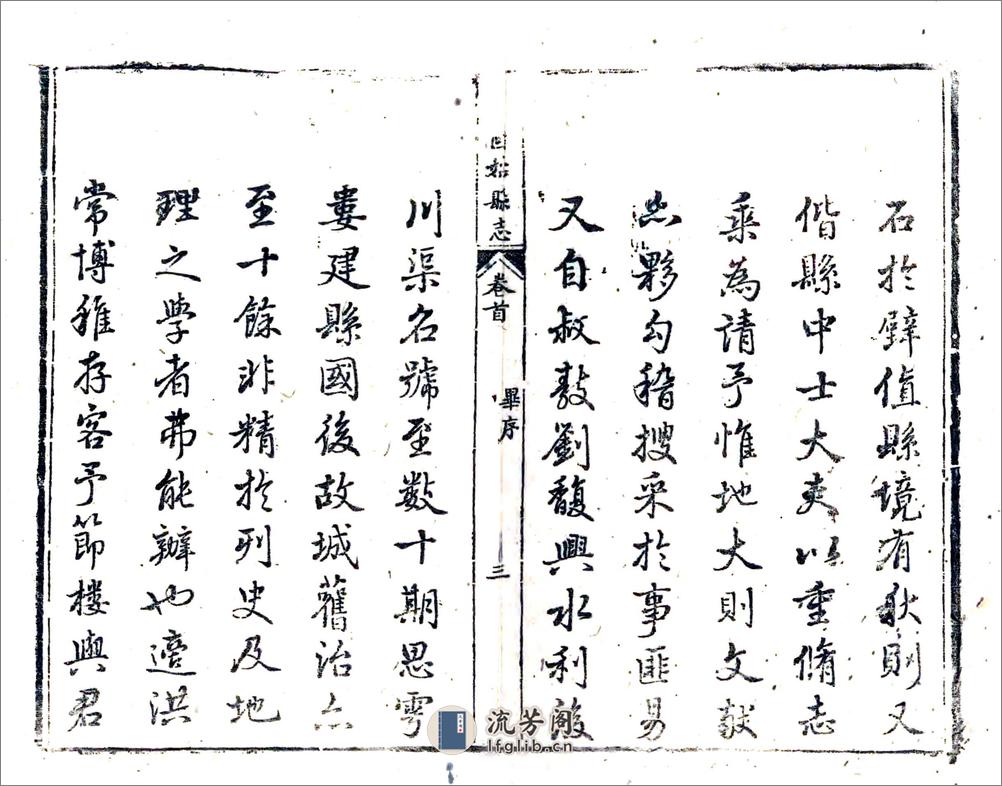 石於壁值縣境有秋則又
偕縣中士大夫以重脩志
乘為請予惟地大則文獻
夥勾稽搜采於事匪易
又自叔敖劉馥興水利後
固始縣志
卷首
畢序
三
川渠名號至數十期思雩
婁建縣國後故城舊治亦
至十餘非精於列史及地
理之學者弗能辦也適洪
常博稚存客予節樓與君
流芳阁
lfglib.cn